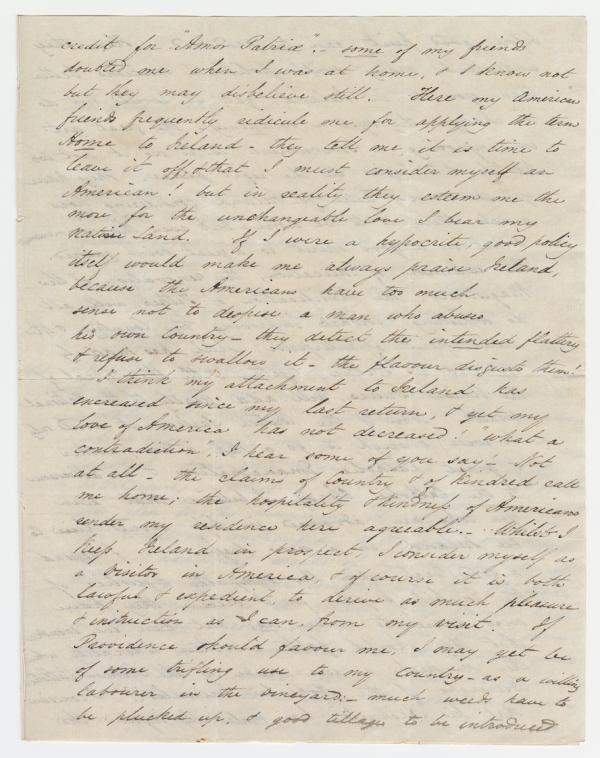 credit for "Amor Patriæ".- some of my friends
doubted me when I was at home, & I know not
but they may disbelieve still. Here my American
friends frequently ridicule me for applying the term
Home to Ireland - they tell me it is time to
leave it off, & that I must consider myself an
American! but in reality they esteem me the
more for the unchangeable love I bear my
native Land. If I were a hypocrite, good policy
itself would make me always praise Ireland,
because the Americans have too much
sense not to despise a man who abuses
his own Country - they detect the intended flattery
& refuse to swallow it - the flavour disgusts them!
I think my attachment to Ireland has
encreased since my last return, & yet my
love of America has not decreased! "what a
contradiction, I hear some of you say'- Not
at all - the claims of Country & of kindred call
me home; the hospitality & kindness of Americans
render my residence here agreable.- Whilst I
keep Ireland in prospect, I consider myself as
a visitor in America, & of course it is both
lawful & expedient, to derive as much pleasure
& instruction as I can, from my visit. If
Providence should favour me, I may yet be
of some trifling use to my Country - as a willing
labourer in the vineyard;- much weeds have to
be plucked up, & good tillage to be introduced